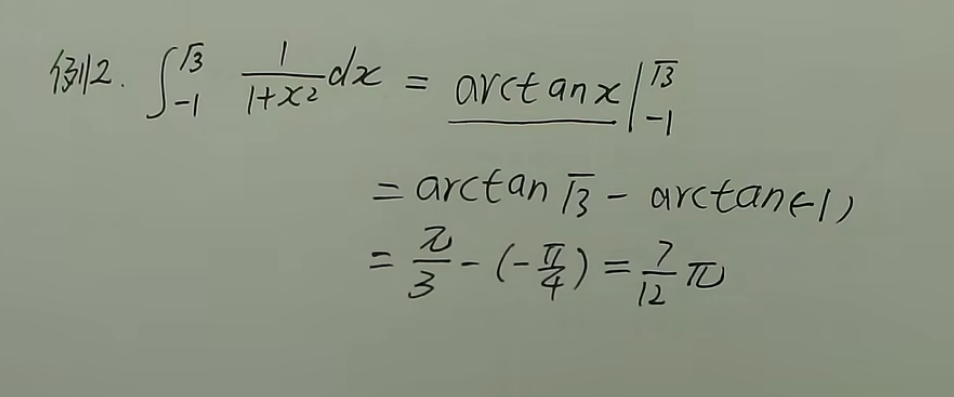 例2. ∫_{-1}^{√3} \frac{1}{1+x²} dx = arctan x |_{-1}^{√3}
= arctan √3 - arctan(-1)
= \frac{π}{3} - (-\frac{π}{4}) = \frac{7}{12} π